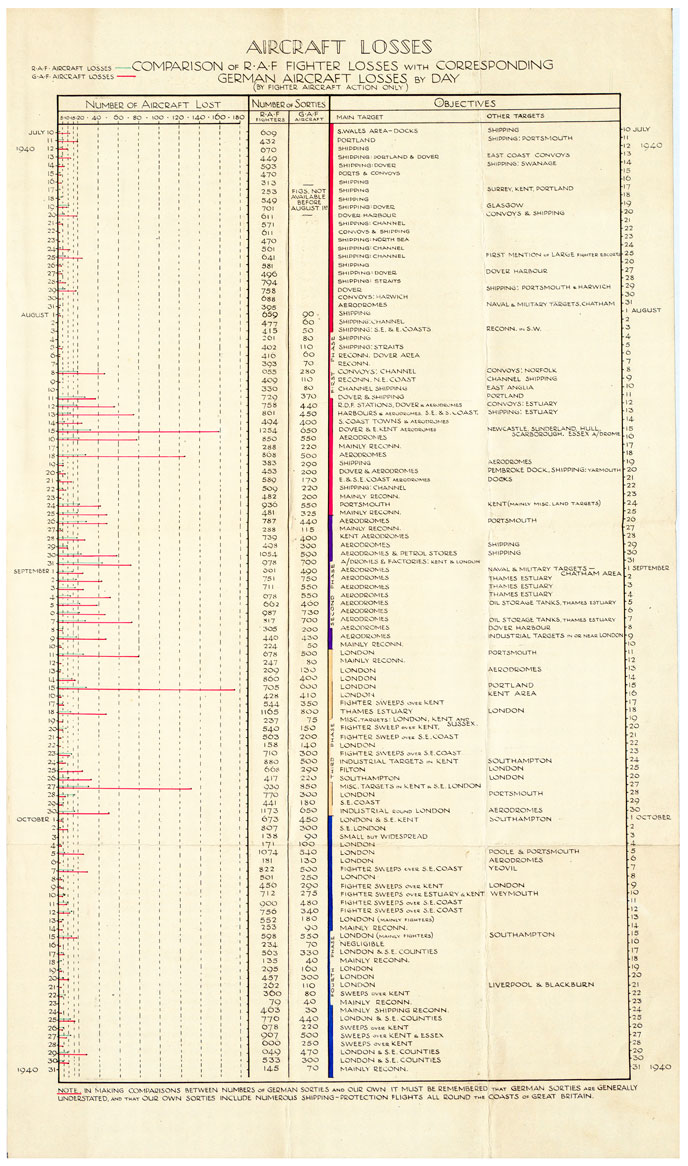 AIRCRAFT LOSSES
R·A·F·AIRCRAFT LOSSES
G·A·F·AIRCRAFT LOSSES
COMPARISON OF R·A·F FIGHTER LOSSES WITH CORRESPONDING
GERMAN AIRCRAFT LOSSES BY DAY
(BY FIGHTER AIRCRAFT ACTION ONLY)
NUMBER OF AIRCRAFT LOST NUMBER OF SORTIES OBJECTIVES
5 10 15 20 40 60 80 100 120 140 160 180 R·A·F FIGHTERS G·A·F AIRCRAFT MAIN TARGET OTHER TARGETS
JULY 10 609 S.WALES AREA-DOCKS SHIPPING 10 JULY
11 432 PORTLAND SHIPPING: PORTSMOUTH 11
1940 12 670 SHIPPING 12 1940
13 449 SHIPPING: PORTLAND & DOVER EAST COAST CONVOYS 13
14 593 SHIPPING: DOVER SHIPPING: SWANAGE 14
15 470 PORTS & CONVOYS 15
16 313 SHIPPING 16
17 253 SHIPPING SURREY, KENT, PORTLAND 17
FIGS. NOT AVAILABLE BEFORE AUGUST 1st
18 549 SHIPPING 18
19 701 SHIPPING: DOVER GLASGOW 19
20 611 DOVER HARBOUR CONVOYS & SHIPPING 20
21 571 SHIPPING: CHANNEL 21
22 611 CONVOYS & SHIPPING 22
23 470 SHIPPING: NORTH SEA 23
24 561 SHIPPING: CHANNEL 24
25 641 SHIPPING: CHANNEL FIRST MENTION OF LARGE FIGHTER ESCORTS 25
26 581 SHIPPING 26
27 496 SHIPPING: DOVER DOVER HARBOUR 27
28 794 SHIPPING: STRAITS 28
29 758 DOVER SHIPPING: PORTSMOUTH & HARWICH 29
30 688 CONVOYS: HARWICH 30
31 395 AERODROMES NAVAL & MILITARY TARGETS, CHATHAM 31
AUGUST 1 659 90 SHIPPING 1 AUGUST
2 477 60 SHIPPING: CHANNEL 2
3 415 50 SHIPPING: S.E. & E. COASTS RECONN. IN S.W. 3
4 261 80 SHIPPING 4
5 402 110 SHIPPING: STRAITS 5
6 416 60 RECONN. DOVER AREA 6
7 393 70 RECONN. 7
FIRST PHASE
8 280 CONVOYS: CHANNEL CONVOYS: NORFOLK 8
9 409 110 RECONN. N.E. COAST CHANNEL SHIPPING 9
10 330 80 CHANNEL SHIPPING EAST ANGLIA 10
11 729 370 DOVER & SHIPPING PORTLAND 11
12 758 440 R.D.F. STATIONS, DOVER & AERODROMES CONVOYS: ESTUARY 12
13 801 450 HARBOURS & AERODROMES S.E. & S. COAST SHIPPING: ESTUARY 13
14 494 400 S. COAST TOWNS & AERODROMES 14
15 1254 650 DOVER & E. KENT AERODROMES NEWCASTLE, SUNDERLAND, HULL, SCARBOROUGH, ESSEX A/DROME 15
16 850 550 AERODROMES 16
17 288 220 MAINLY RECONN. 17
18 808 500 AERODROMES 18
19 383 290 SHIPPING AERODROMES 19
20 453 200 DOVER & AERODROMES PEMBROKE DOCK, SHIPPING: YARMOUTH 20
21 589 170 E. & S.E. COAST AERODROMES DOCKS 21
22 509 220 SHIPPING: CHANNEL 22
23 482 200 MAINLY RECONN. 23
24 936 550 PORTSMOUTH KENT (MAINLY MISC. LAND TARGETS) 24
25 481 325 MAINLY RECONN. 25
26 787 440 AERODROMES PORTSMOUTH 26
27 288 115 MAINLY RECONN. 27
28 739 400 KENT AERODROMES 28
29 498 300 AERODROMES SHIPPING 29
30 1054 500 AERODROMES & PETROL STORES SHIPPING 30
31 978 700 A/DROMES & FACTORIES: KENT & LONDON 31
SECOND PHASE
SEPTEMBER 1 661 490 AERODROMES NAVAL & MILITARY TARGETS – CHATHAM AREA 1 SEPTEMBER
2 751 750 AERODROMES THAMES ESTUARY 2
3 711 550 AERODROMES THAMES ESTUARY 3
4 678 550 AERODROMES THAMES ESTUARY 4
5 662 400 AERODROMES OIL STORAGE TANKS, THAMES ESTUARY 5
6 987 730 AERODROMES 6
7 817 700 AERODROMES OIL STORAGE TANKS, THAMES ESTUARY 7
8 305 200 AERODROMES DOVER HARBOUR 8
9 440 430 AERODROMES INDUSTRIAL TARGETS IN OR NEAR LONDON 9
10 224 50 MAINLY RECONN. 10
11 678 500 LONDON PORTSMOUTH 11
12 247 80 MAINLY RECONN. 12
13 209 130 LONDON AERODROMES 13
14 860 400 LONDON 14
15 705 600 LONDON PORTLAND 15
16 428 410 LONDON KENT AREA 16
17 544 350 FIGHTER SWEEPS OVER KENT 17
18 1165 800 THAMES ESTUARY LONDON 18
19 237 75 MISC. TARGETS: LONDON, KENT AND SUSSEX. 19
20 540 150 FIGHTER SWEEP OVER KENT 20
21 563 200 FIGHTER SWEEP OVER S.E. COAST 21
22 158 140 LONDON 22
THIRD PHASE
23 710 300 FIGHTER SWEEPS OVER S.E. COAST 23
24 880 500 INDUSTRIAL TARGETS IN KENT SOUTHAMPTON 24
25 668 290 FILTON LONDON 25
26 417 220 SOUTHAMPTON LONDON 26
27 930 850 MISC. TARGETS IN KENT & S.E. LONDON 27
28 770 300 LONDON PORTSMOUTH 28
29 441 180 S.E. COAST 29
30 1173 650 INDUSTRIAL ROUND LONDON AERODROMES 30
OCTOBER 1 673 450 LONDON & S.E. KENT SOUTHAMPTON 1 OCTOBER
2 807 300 S.E. LONDON 2
3 138 90 SMALL BUT WIDESPREAD 3
4 171 100 LONDON 4
5 1074 540 LONDON POOLE & PORTSMOUTH 5
6 181 130 LONDON AERODROMES 6
7 822 500 FIGHTER SWEEPS OVER S.E. COAST YEOVIL 7
8 501 250 LONDON 8
9 450 290 FIGHTER SWEEPS OVER KENT LONDON 9
10 712 275 FIGHTER SWEEPS OVER ESTUARY & KENT WEYMOUTH 10
11 900 480 FIGHTER SWEEPS OVER S.E. COAST 11
12 756 340 FIGHTER SWEEPS OVER S.E. COAST 12
13 552 180 LONDON (MAINLY FIGHTERS) 13
14 253 90 MAINLY RECONN. 14
15 598 550 LONDON (MAINLY FIGHTERS) SOUTHAMPTON 15
16 234 70 NEGLIGIBLE 16
17 563 330 LONDON & S.E. COUNTIES 17
18 135 40 MAINLY RECONN. 18
FOURTH PHASE
19 295 160 LONDON 19
20 457 300 LONDON 20
21 262 110 LONDON LIVERPOOL & BLACKBURN 21
22 360 80 SWEEPS OVER KENT 22
23 79 40 MAINLY RECONN. 23
24 463 30 MAINLY SHIPPING RECONN. 24
25 776 440 LONDON & S.E. COUNTIES 25
26 678 220 SWEEPS OVER KENT 26
27 907 500 SWEEPS OVER KENT & ESSEX 27
28 600 250 SWEEPS OVER KENT 28
29 649 470 LONDON & S.E. COUNTIES 29
30 533 300 LONDON & S.E. COUNTIES 30
1940 31 145 70 MAINLY RECONN. 31 1940
NOTE. IN MAKING COMPARISONS BETWEEN NUMBERS OF GERMAN SORTIES AND OUR OWN IT MUST BE REMEMBERED THAT GERMAN SORTIES ARE GENERALLY
UNDERSTATED, AND THAT OUR OWN SORTIES INCLUDE NUMEROUS SHIPPING-PROTECTION FLIGHTS ALL ROUND THE COASTS OF GREAT BRITAIN.